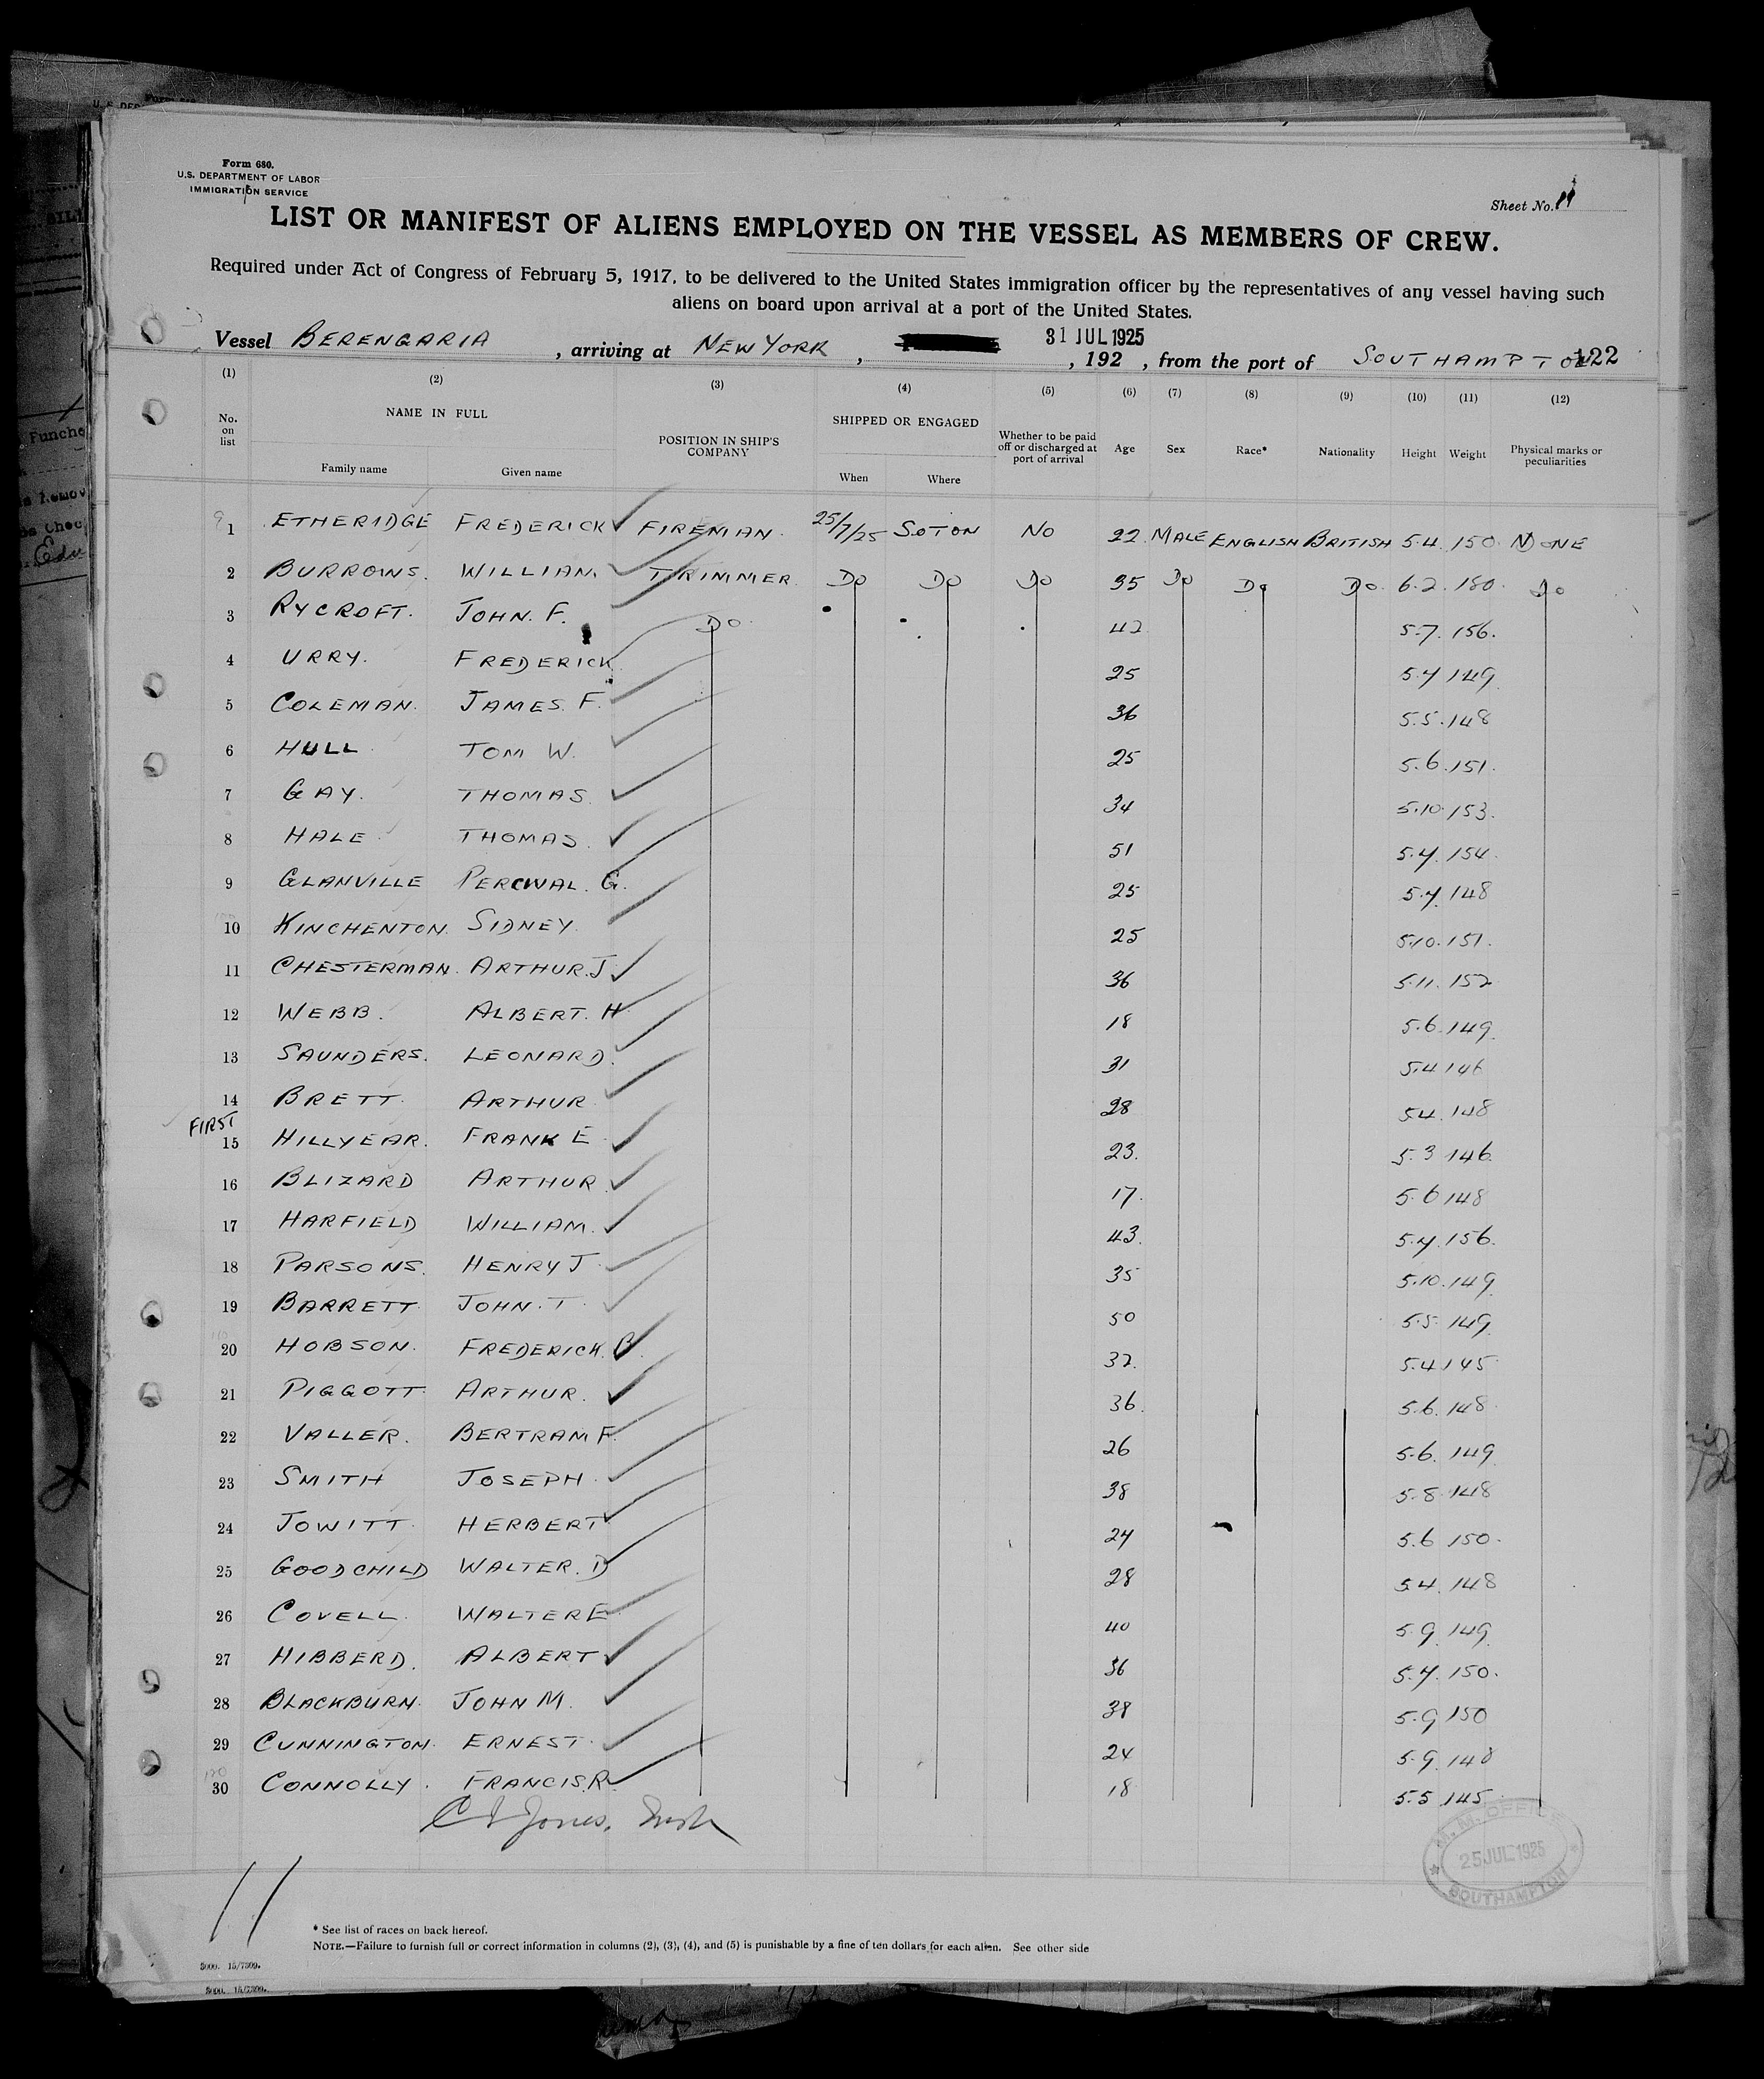 Form 680.
U.S. DEPARTMENT OF LABOR
IMMIGRATION SERVICE
Sheet No. 11
LIST OR MANIFEST OF ALIENS EMPLOYED ON THE VESSEL AS MEMBERS OF CREW.
Required under Act of Congress of February 5, 1917, to be delivered to the United States immigration officer by the representatives of any vessel having such
aliens on board upon arrival at a port of the United States.
Vessel BERENGARIA, arriving at NEW YORK, 31 JUL 1925, 192 , from the port of SOUTHAMPTON 122
(1) (2) (3) (4) (5) (6) (7) (8) (9) (10) (11) (12)
No. on list NAME IN FULL Family name Given name POSITION IN SHIP'S COMPANY SHIPPED OR ENGAGED When Where Whether to be paid off or discharged at port of arrival Age Sex Race* Nationality Height Weight Physical marks or peculiarities
1 ETHERIDGE FREDERICK FIREMAN. 25/7/25 SOTON NO 22 MALE ENGLISH BRITISH 5.4 150 NONE
2 BURROWS. WILLIAM. TRIMMER. DO DO DO 35 DO DO DO. 6.2. 180. DO
3 RYCROFT. JOHN. F. DO. 42 5.7. 156.
4 URRY. FREDERICK. 25 5.7 149
5 COLEMAN. JAMES F. 36 5.5. 148
6 HULL. TOM W. 25 5.6. 151.
7 GAY. THOMAS. 34 5.10. 153.
8 HALE. THOMAS. 51 5.7. 154.
9 GLANVILLE PERCIVAL. G. 25 5.7. 148
10 KINCHENTON. SIDNEY. 25 5.10. 151.
11 CHESTERMAN. ARTHUR. J 36 5.11. 152
12 WEBB. ALBERT. H 18 5.6. 149
13 SAUNDERS. LEONARD. 31 5.4 146
14 BRETT. ARTHUR 28 5.4. 148
FIRST
15 HILLYEAR. FRANK E 23. 5.3 146.
16 BLIZARD ARTHUR 17. 5.6 148
17 HARFIELD WILLIAM. 43. 5.7. 156.
18 PARSONS. HENRY J 35 5.10. 149
19 BARRETT. JOHN. T. 50 5.5. 149
20 HOBSON. FREDERICK. 32. 5.4. 145
21 PIGGOTT. ARTHUR. 36. 5.6. 148
22 VALLER. BERTRAM F. 26 5.6. 149
23 SMITH JOSEPH. 38 5.8. 148
24 JOWITT. HERBERT 24 5.6 150.
25 GOODCHILD WALTER. D 28 5.4. 148
26 COVELL. WALTER E. 40 5.9. 149
27 HIBBERD. ALBERT 36 5.7. 150.
28 BLACKBURN. JOHN M. 38 5.9 150
29 CUNNINGTON. ERNEST. 24 5.9. 148
30 CONNOLLY. FRANCIS. R. 18 5.5 145
Jones.
M. M. OFFICE
25 JUL 1925
SOUTHAMPTON
11
* See list of races on back hereof.
NOTE.—Failure to furnish full or correct information in columns (2), (3), (4), and (5) is punishable by a fine of ten dollars for each alien. See other side
5000. 15/7399.